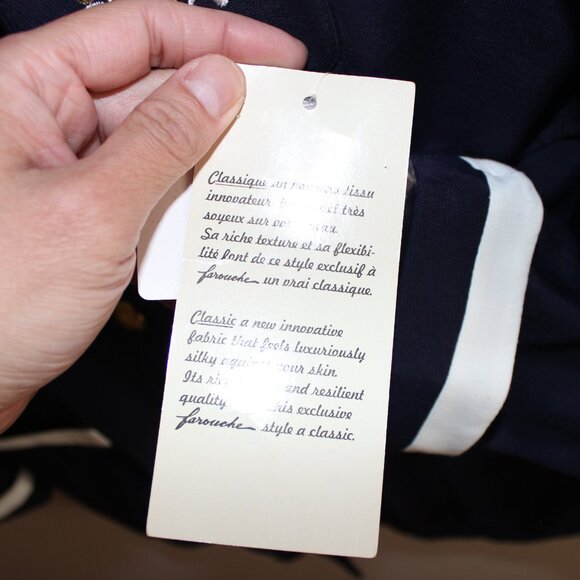 Classique un tissu
innovateur, et très
soyeux sur
Sa riche texture et sa flexibi-
lité font de ce style exclusif à
farouche un vrai classique.
Classic a new innovative
fabric that feels luxuriously
silky against your skin.
Its and resilient
quality this exclusive
farouche style a classic.